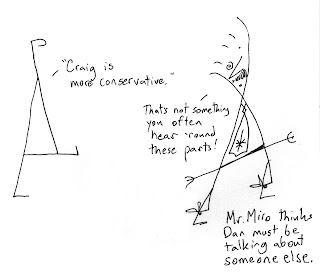 "Craig is
more conservative."
That's not something
you often
hear 'round
these parts!
Mr. Miro thinks
Dan must be
talking about
someone else.